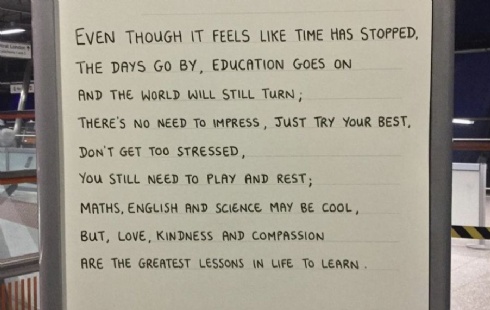 EVEN THOUGH IT FEELS LIKE TIME HAS STOPPED,
THE DAYS GO BY, EDUCATION GOES ON
AND THE WORLD WILL STILL TURN;
THERE'S NO NEED TO IMPRESS, JUST TRY YOUR BEST,
DON'T GET TOO STRESSED,
YOU STILL NEED TO PLAY AND REST;
MATHS, ENGLISH AND SCIENCE MAY BE COOL,
BUT, LOVE, KINDNESS AND COMPASSION
ARE THE GREATEST LESSONS IN LIFE TO LEARN.